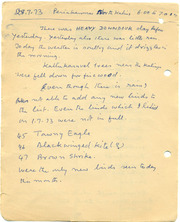 28.7.73 Periachawan
There was HEAVY DOWNPOUR day before
yesterday. Yesterday also there was little rain.
Today the weather is cloudy and it drizzled in
the morning.
trees near the
were fell down for fire wood.
Even though there is rain I
am not able to add any new birds to
the list. Even the birds which I listed
on 1.7.73 were not in full.
45 Tawny Eagle
46 Blackwinged Kite
47 Brown Shrike
were the only new birds seen today
this month.